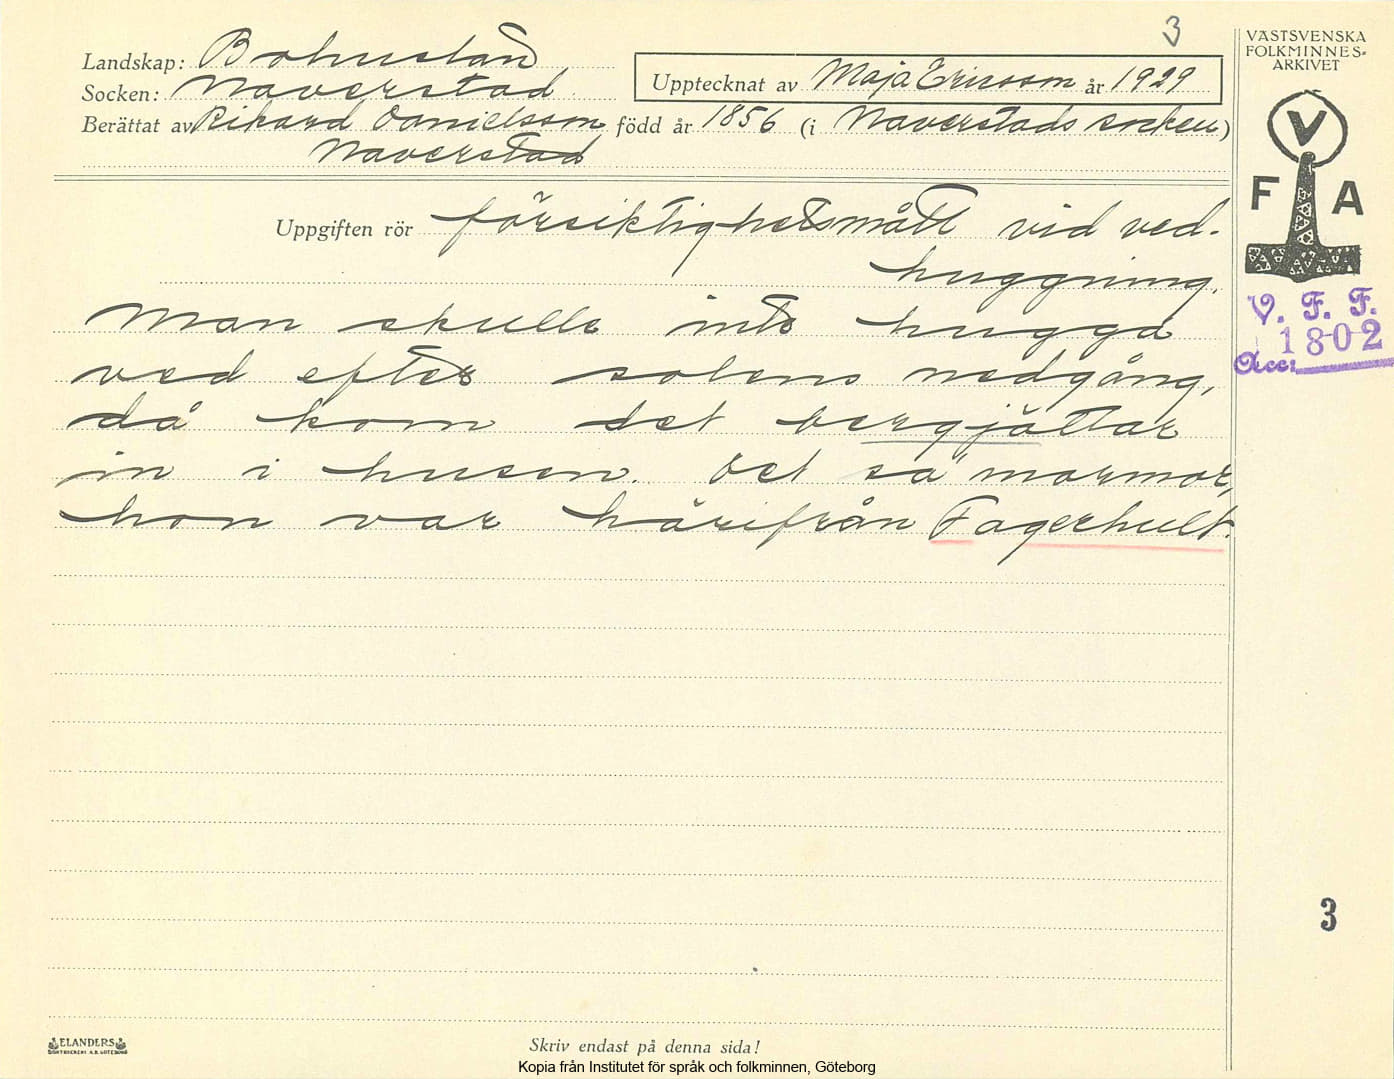 3
Landskap: Bohuslän
Socken: Naverstad
Upptecknat av Maja Ericsson år 1929
Berättat av Rikard Danielsson född år 1856 (i Naverstads socken)
Naverstad
Uppgiften rör försiktighetsmått vid ved-
huggning.
Man skulle inte hugga
ved efter solens nedgång,
då kom det bergjättar
in i husen. Det sa mormor,
hon var härifrån Fagerhult.
VÄSTSVENSKA
FOLKMINNES-
ARKIVET
V
F A
V. F. F.
1802
Acc:
3
ELANDERS
BOKTRYCKERI A.B. GÖTEBORG
Skriv endast på denna sida!
Kopia från Institutet för språk och folkminnen, Göteborg